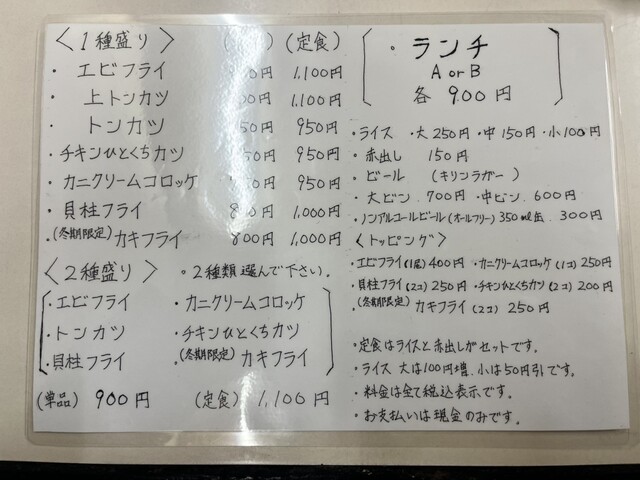 〈1種盛り〉 (定食)
・エビフライ 1,100円
・上トンカツ 1,100円
・トンカツ 950円
・チキンひとくちカツ 950円
・カニクリームコロッケ 950円
・貝柱フライ 1,000円
・(冬期限定)カキフライ 800円 1,000円
〈2種盛り〉 ○2種類選んで下さい。
・エビフライ ・カニクリームコロッケ
・トンカツ ・チキンひとくちカツ
・貝柱フライ ・(冬期限定)カキフライ
(単品) 900円 (定食) 1,100円
・ランチ
A or B
各 900円
・ライス ・大250円・中150円・小100円
・赤出し 150円
・ビール (キリンラガー)
・大ビン.700円 中ビン.600円
・ノンアルコールビール(オールフリー)350ml缶.300円
〈トッピング〉
・エビフライ(1尾)400円 ・カニクリームコロッケ(1コ)250円
・貝柱フライ(2コ)250円 ・チキンひとくちカツ(2コ)200円
・(冬期限定)カキフライ(2コ)250円
・定食はライスと赤出しがセットです。
・ライス 大は100円増.小は50円引です。
・料金は全て税込表示です。
・お支払いは現金のみです。